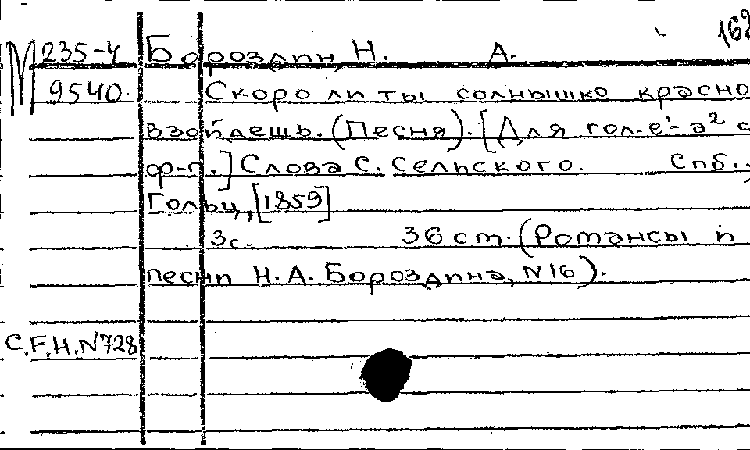 162
М 235-4 Бороздин, Н. А.
9540. Скоро ли ты солнышко красно
взойдешь. (Песня). [Для гол. e¹-a² с
ф-п.] Слова С. Сельского. Спб.,
Гольц, [1859]
3с. 36 cm. (Романсы и
песни Н. А. Бороздина, N16).
C.F.H. N728